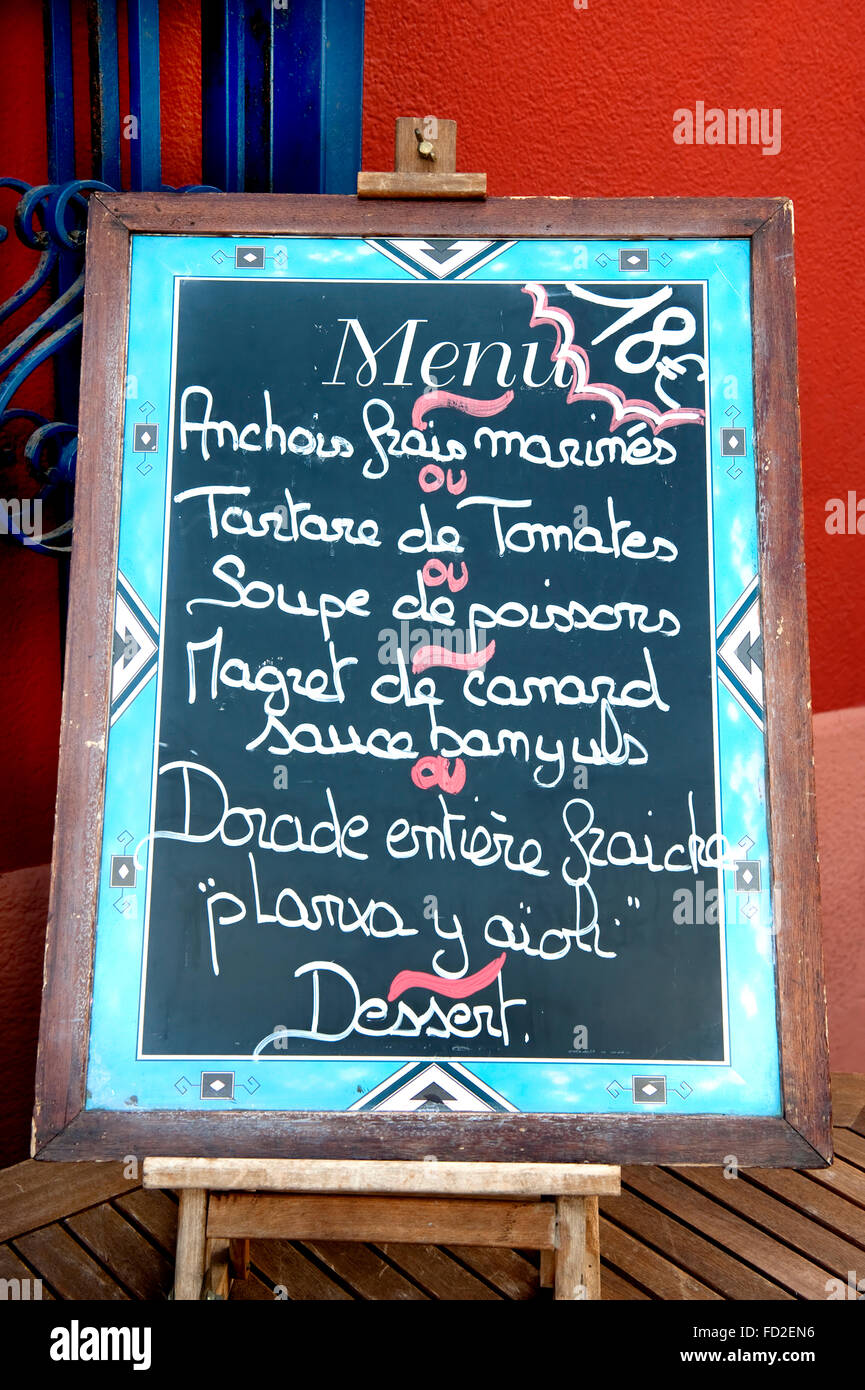 Menu
18€
Anchois frais marinés
ou
Tartare de Tomates
ou
Soupe de poissons
Magret de canard
sauce banyuls
ou
Dorade entière fraiche
"planxa y aïoli"
Dessert.
alamy
Image ID: FD2EN6
www.alamy.com